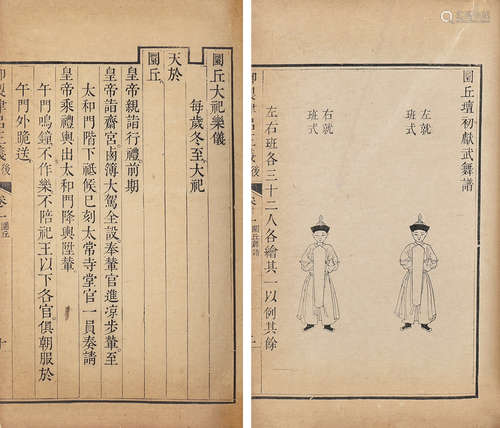 圜丘大祀樂儀
每歲冬至大祀
天於
圜丘
皇帝親詣行禮前期
皇帝詣齋宮鹵簿大駕全設奉輦官進涼步輦至
太和門階下祗候已刻太常寺堂官一員奏請
皇帝乘禮輿出太和門降輿陞輦
午門鳴鐘不作樂不陪祀王以下各官俱朝服於
午門外跪送
後
卷一
圜丘
十
圜丘壇初獻武舞譜
左就
班式
右就
班式
左右班各三十二人各繪其一以例其餘
後